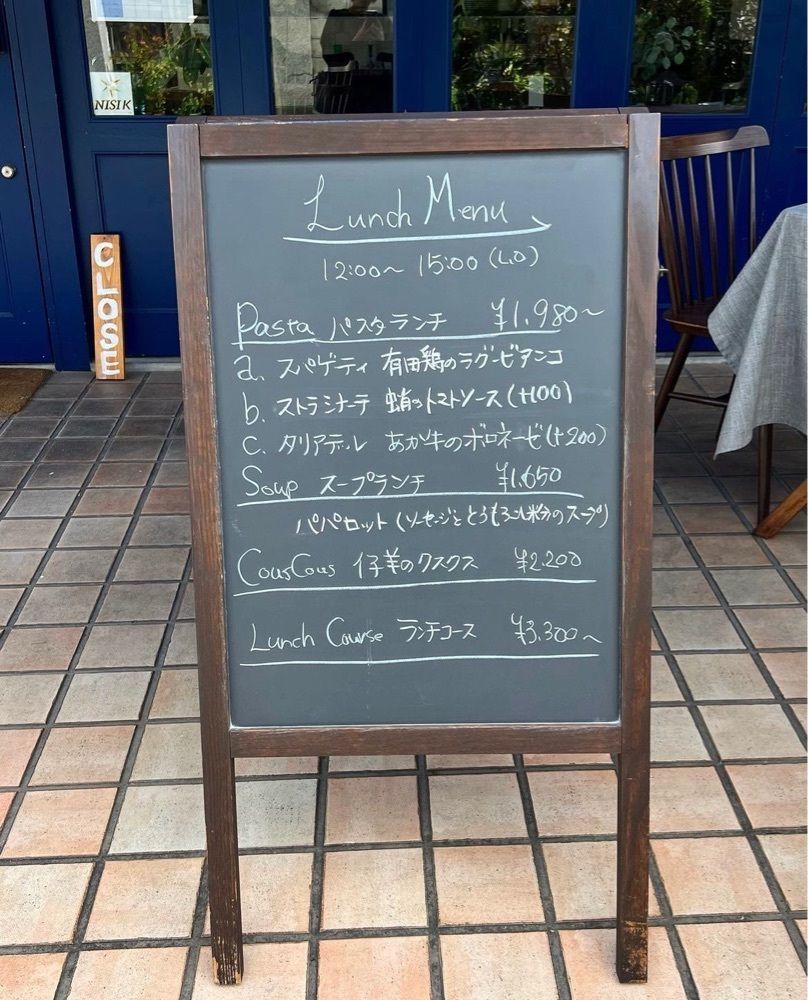 NISIK
CLOSE
Lunch Menu
12:00〜 15:00 (L.O)
Pasta パスタランチ ¥1,980〜
a. スパゲティ 有田鶏のラグービアンコ
b. ストラシナーテ 蛸のトマトソース(+100)
c. タリアテレ あか牛のボロネーゼ(+200)
Soup スープランチ ¥1,650
パパロット (ソーセージととうもろこし粉のスープ)
CousCous 仔羊のクスクス ¥2,200
Lunch Course ランチコース ¥3,300〜